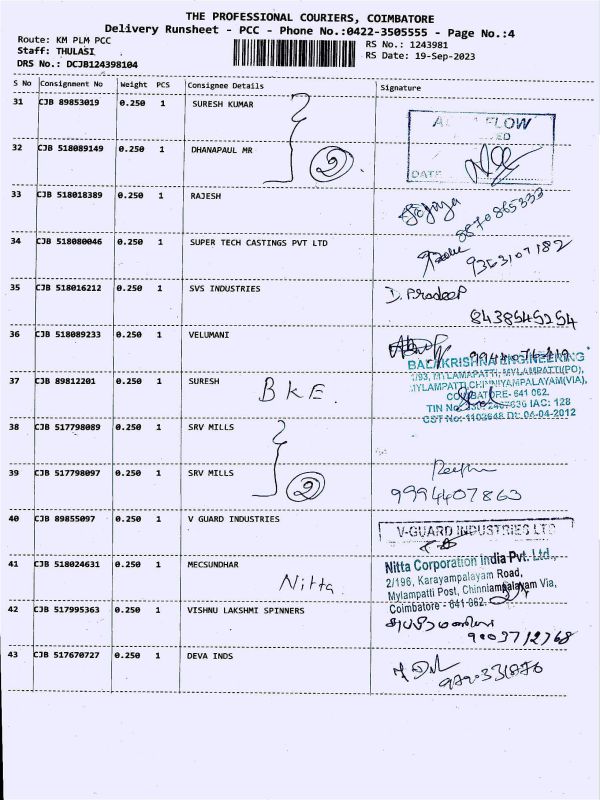 THE PROFESSIONAL COURIERS, COIMBATORE
Delivery Runsheet - PCC - Phone No.:0422-3505555 - Page No.:4
Route: KM PLM PCC
RS No.: 1243981
Staff: THULASI
RS Date: 19-Sep-2023
DRS No.: DCJB124398104
S No Consignment No Weight PCS Consignee Details Signature
31 CJB 89853019 0.250 1 SURESH KUMAR
FLOW
ED
32 CJB 518089149 0.250 1 DHANAPAUL MR
2
DATE
33 CJB 518018389 0.250 1 RAJESH
8870865333
34 CJB 518080046 0.250 1 SUPER TECH CASTINGS PVT LTD
9363107182
35 CJB 518016212 0.250 1 SVS INDUSTRIES
D. Pradeep
8438545254
36 CJB 518089233 0.250 1 VELUMANI
BALAKRISHNA ENGINEERING
37 CJB 89812201 0.250 1 SURESH
BKE.
1/93, MYLAMAPATTI, MYLAMPATTI(PO),
MYLAMPATTI, CHINNIYAMPALAYAM(VIA),
COIMBATORE- 641 062.
IAC: 128
Dt: 04-04-2012
38 CJB 517798089 0.250 1 SRV MILLS
39 CJB 517798097 0.250 1 SRV MILLS
2
9994407863
40 CJB 89855097 0.250 1 V GUARD INDUSTRIES
V-GUARD INDUSTRIES LTD
41 CJB 518024631 0.250 1 MECSUNDHAR
Nitta
Nitta Corporation India Pvt. Ltd.,
2/196, Karayampalayam Road,
Mylampatti Post, Chinniampalayam Via,
Coimbatore - 641 062.
42 CJB 517995363 0.250 1 VISHNU LAKSHMI SPINNERS
9003712768
43 CJB 517670727 0.250 1 DEVA INDS